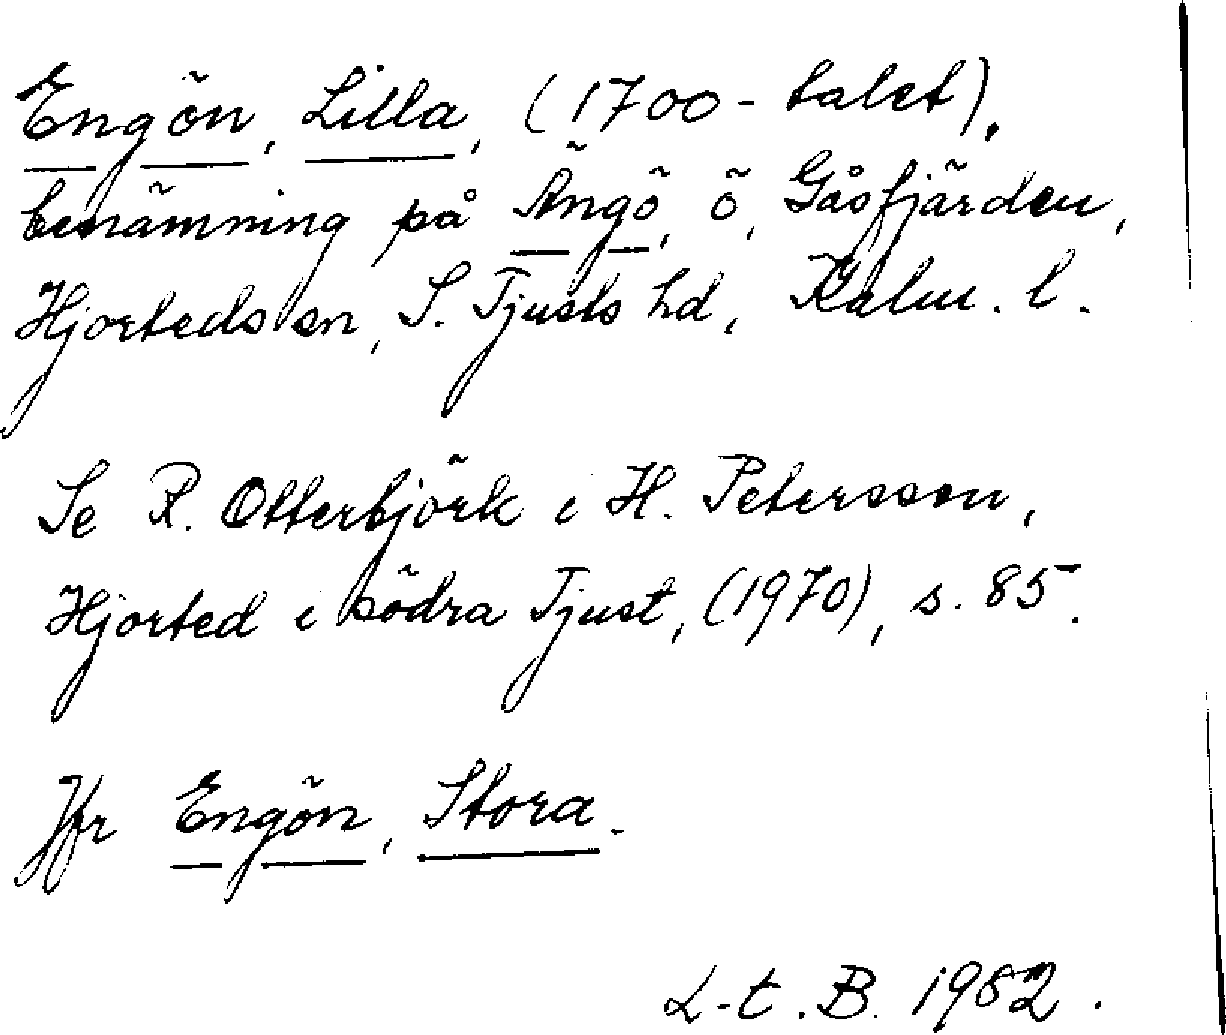 Engön, Lilla, (1700-talet),
benämning på Ängö, ö, Gåsfjärden,
Hjorteds sn, S. Tjusts hd, Kalm. l.
Se R. Otterbjörk i H. Petersson,
Hjorted i södra Tjust, (1970), s. 85.
Jfr Engön, Stora.
L-t. B. 1982.